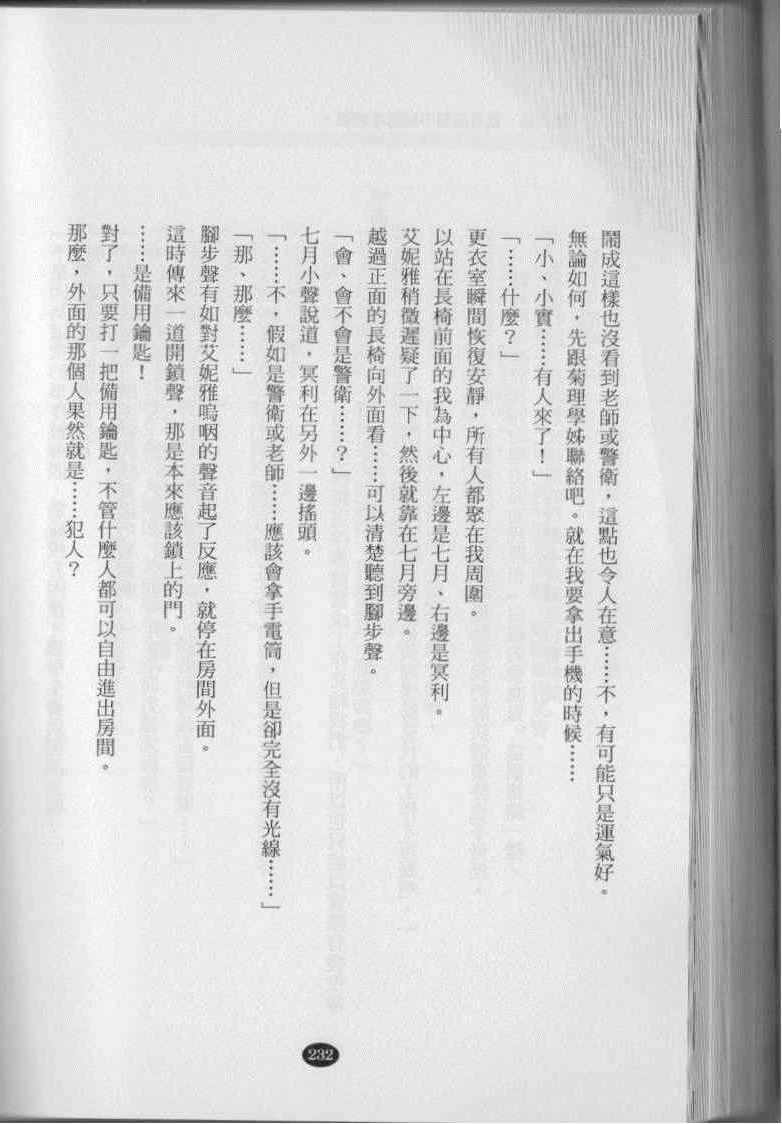 鬧成這樣也沒看到老師或警衛，這點也令人在意……不，有可能只是運氣好。
無論如何，先跟菊理學姊聯絡吧。就在我要拿出手機的時候……
「小、小實……有人來了！」
「……什麼？」
更衣室瞬間恢復安靜，所有人都聚在我周圍。
以站在長椅前面的我為中心，左邊是七月、右邊是冥利。
艾妮雅稍微遲疑了一下，然後就靠在七月旁邊。
越過正面的長椅向外面看……可以清楚聽到腳步聲。
「會、會不會是警衛……？」
七月小聲說道，冥利在另外一邊搖頭。
「……不，假如是警衛或老師……應該會拿手電筒，但是卻完全沒有光線……」
「那、那麼……」
腳步聲有如對艾妮雅嗚咽的聲音起了反應，就停在房間外面。
這時傳來一道開鎖聲，那是本來應該鎖上的門。
……是備用鑰匙！
對了，只要打一把備用鑰匙，不管什麼人都可以自由進出房間。
那麼，外面的那個人果然就是……犯人？
232